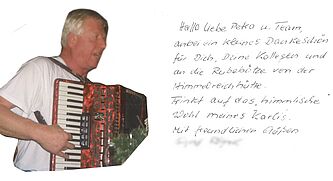 Hallo liebe Petra u. Team,
anbei ein kleines Dankeschön
für Dich, Deine Kollegin und
an die Rubehütte von der
Himmelreichhütte.
Trinkt auf das himmlische
Wohl meines Karlis.
Mit freundlichen Grüßen